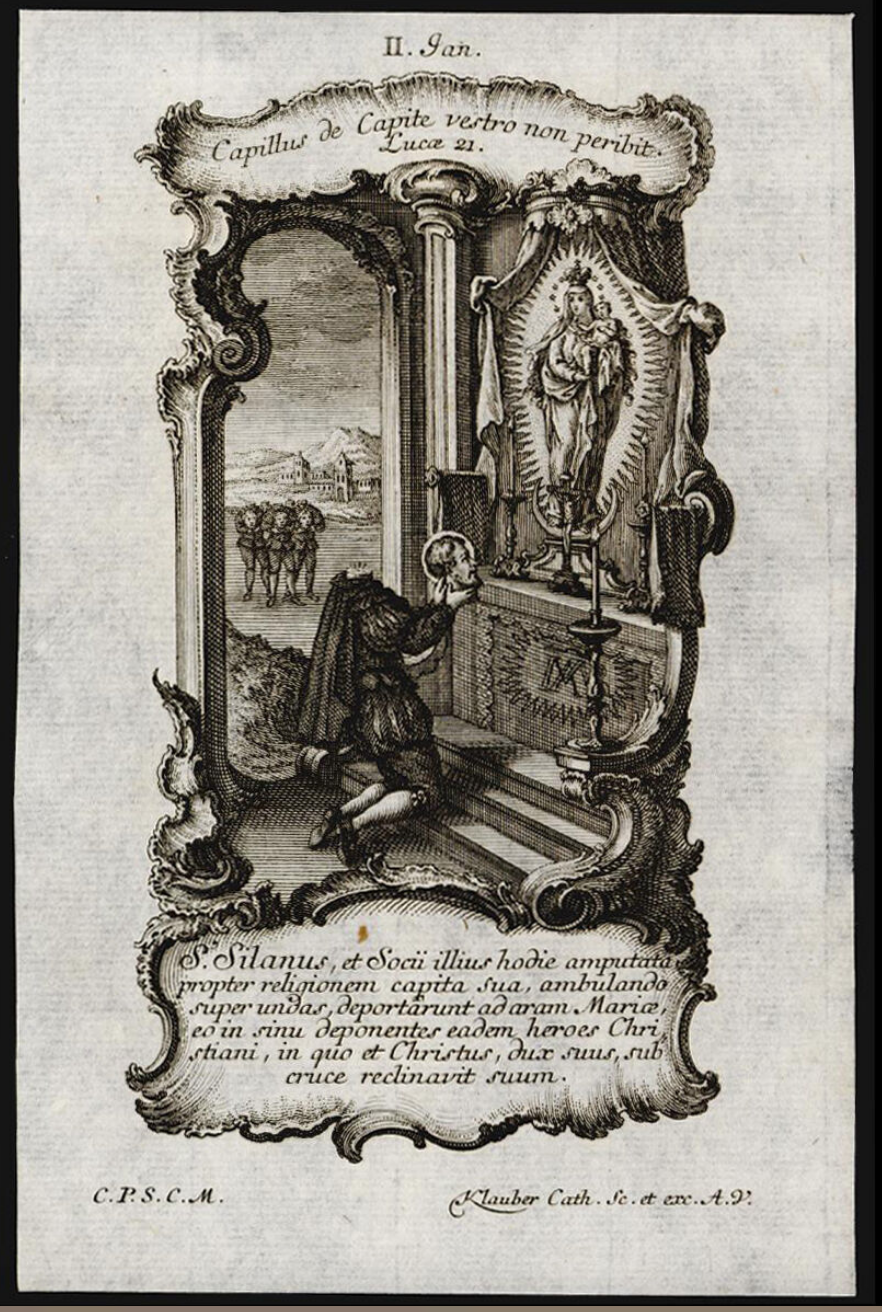 II. Jan.
Capillus de Capite vestro non peribit.
Lucæ 21.
S. Silanus, et Socii illius hodie amputata
propter religionem capita sua, ambulando
super undas, deportârunt ad aram Mariæ,
eô in sinu deponentes eadem heroes Chri,
stiani, in quo et Christus, dux suus, sub
cruce reclinavit suum.
C. P. S. C. M.
Klauber Cath. Sc. et exc. A. V.